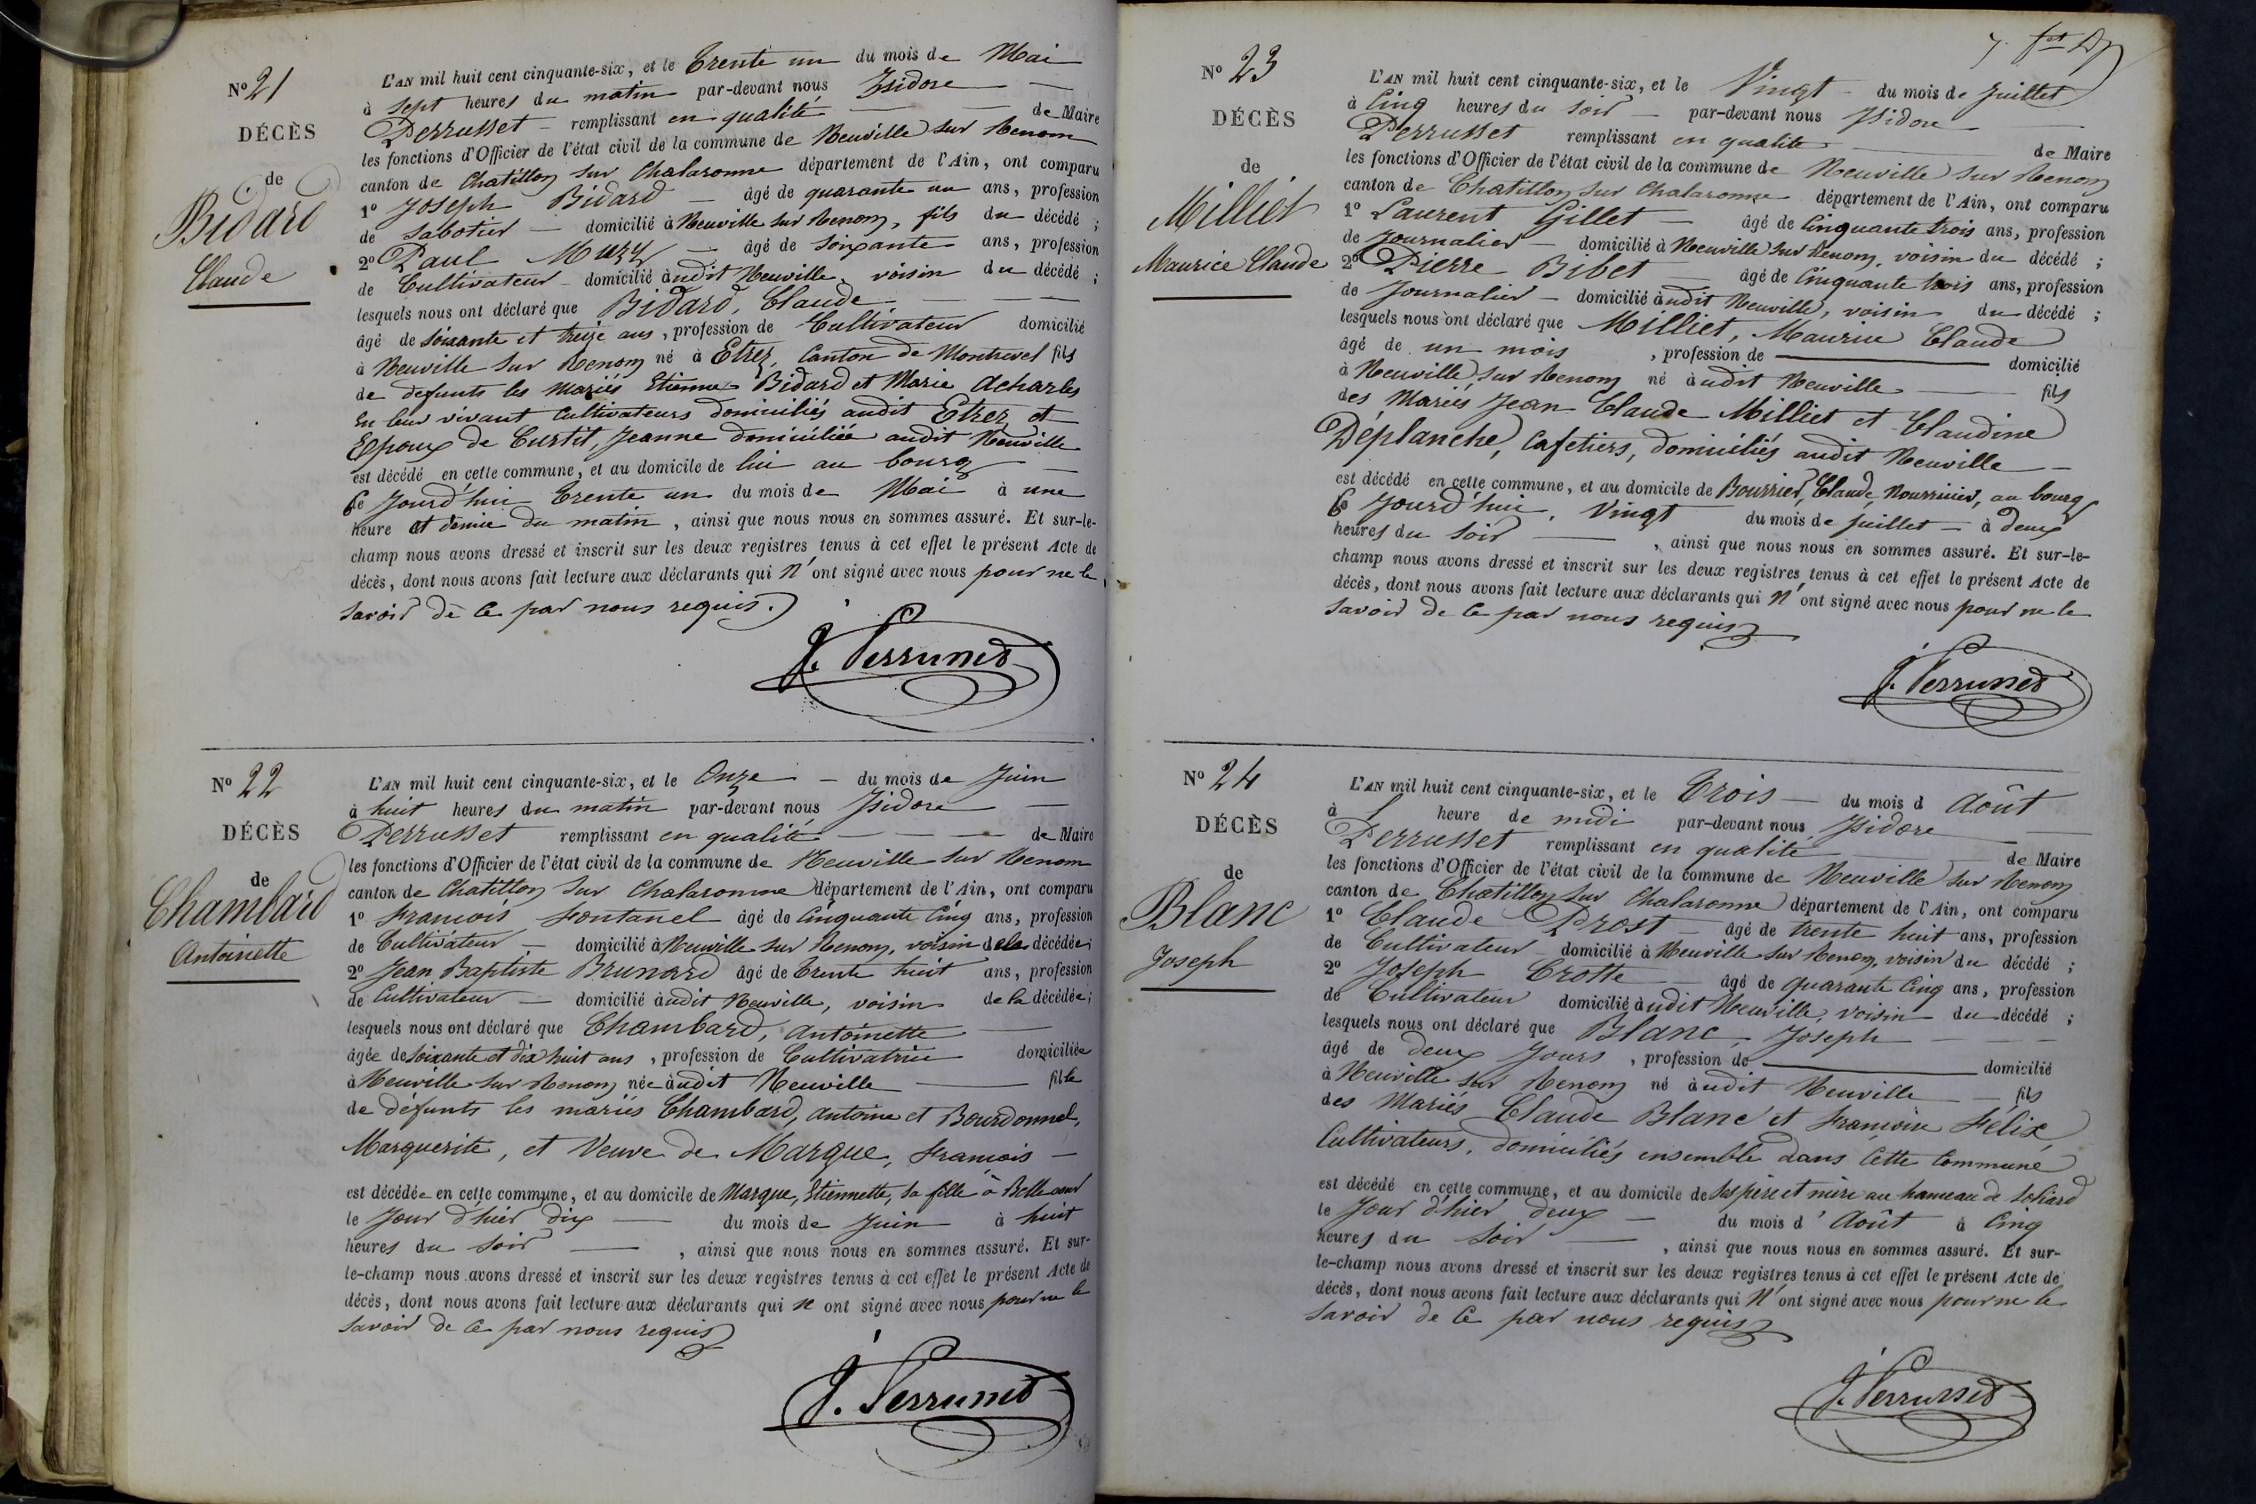 N° 21
DÉCÈS
de
Bidard
Claude
L'AN mil huit cent cinquante-six, et le trente un du mois de Mai
à sept heures du matin par-devant nous Isidore
Perrusset remplissant en qualité de Maire
les fonctions d'Officier de l'état civil de la commune de Neuville sur Renom
canton de Chatillon sur Chalaronne département de l'Ain, ont comparu
1° Joseph Bidard âgé de quarante un ans, profession
de sabotier domicilié à Neuville sur Renom, fils du décédé ;
2° Paul Muzy âgé de soixante ans, profession
de Cultivateur domicilié audit Neuville, voisin du décédé ;
lesquels nous ont déclaré que Bidard, Claude
âgé de soixante et treize ans, profession de Cultivateur domicilié
à Neuville sur Renom né à Etrez, Canton de Montrevel fils
de defunts les mariés Etienne Bidard et Marie Acharles
en leur vivant Cultivateurs domiciliés audit Etrez et
Epoux de Curtil, Jeanne domiciliée audit Neuville
est décédé en cette commune, et au domicile de lui au bourg
Ce Jourd'hui trente un du mois de Mai à une
heure et demie du matin, ainsi que nous nous en sommes assuré. Et sur-le-
champ nous avons dressé et inscrit sur les deux registres tenus à cet effet le présent Acte de
décès, dont nous avons fait lecture aux déclarants qui n'ont signé avec nous pour ne le
savoir de ce par nous requis.
J. Perrusset
N° 22
DÉCÈS
de
Chambard
Antoinette
L'AN mil huit cent cinquante-six, et le Onze du mois de Juin
à huit heures du matin par-devant nous Isidore
Perrusset remplissant en qualité de Maire
les fonctions d'Officier de l'état civil de la commune de Neuville sur Renom
canton de Chatillon sur Chalaronne département de l'Ain, ont comparu
1° Francois Fontanel âgé de Cinquante Cinq ans, profession
de Cultivateur domicilié à Neuville sur Renom, voisin de la décédée ;
2° Jean Baptiste Brunard âgé de trente huit ans, profession
de Cultivateur domicilié audit Neuville, voisin de la décédée ;
lesquels nous ont déclaré que Chambard, Antoinette
âgée de soixante et dix huit ans, profession de Cultivatrice domiciliée
à Neuville sur Renom née audit Neuville fille
de défunts les mariés Chambard, Antoine et Bourdonnel,
Marguerite, et Veuve de Marque, Francois
est décédée en cette commune, et au domicile de Marque, Etiennette, sa fille à
le Jour d'hier dix du mois de Juin à huit
heures du soir, ainsi que nous nous en sommes assuré. Et sur-
le-champ nous avons dressé et inscrit sur les deux registres tenus à cet effet le présent Acte de
décès, dont nous avons fait lecture aux déclarants qui n ont signé avec nous pour ne le
savoir de ce par nous requis
J. Perrusset
N° 23
DÉCÈS
de
Milliet
Maurice Claude
L'AN mil huit cent cinquante-six, et le Vingt du mois de Juillet
à Cinq heures du soir par-devant nous Isidore
Perrusset remplissant en qualité de Maire
les fonctions d'Officier de l'état civil de la commune de Neuville sur Renom
canton de Chatillon sur Chalaronne département de l'Ain, ont comparu
1° Laurent Gillet âgé de Cinquante trois ans, profession
de Journalier domicilié à Neuville sur Renom, voisin du décédé ;
2° Pierre Bibet âgé de Cinquante trois ans, profession
de Journalier domicilié audit Neuville, voisin du décédé ;
lesquels nous ont déclaré que Milliet, Maurice Claude
âgé de un mois, profession de domicilié
à Neuville sur Renom né audit Neuville fils
des Mariés Jean Claude Milliet et Claudine
Déplanche, Cafetiers, domiciliés audit Neuville
est décédé en cette commune, et au domicile de Bourrier, Claude, Nourricier, au bourg
Ce Jourd'hui, Vingt du mois de Juillet à deux
heures du soir, ainsi que nous nous en sommes assuré. Et sur-le-
champ nous avons dressé et inscrit sur les deux registres tenus à cet effet le présent Acte de
décès, dont nous avons fait lecture aux déclarants qui n'ont signé avec nous pour ne le
savoir de ce par nous requis
J. Perrusset
N° 24
DÉCÈS
de
Blanc
Joseph
L'AN mil huit cent cinquante-six, et le Trois du mois d Août
à 1 heure de midi par-devant nous Isidore
Perrusset remplissant en qualité de Maire
les fonctions d'Officier de l'état civil de la commune de Neuville sur Renom
canton de Chatillon sur Chalaronne département de l'Ain, ont comparu
1° Claude Prost âgé de trente huit ans, profession
de Cultivateur domicilié à Neuville sur Renom, voisin du décédé ;
2° Joseph Crotte âgé de quarante Cinq ans, profession
de Cultivateur domicilié audit Neuville, voisin du décédé ;
lesquels nous ont déclaré que Blanc, Joseph
âgé de deux Jours, profession de domicilié
à Neuville sur Renom né audit Neuville fils
des Mariés Claude Blanc et Francoise Félix,
Cultivateurs, domiciliés ensemble dans Cette Commune
est décédé en cette commune, et au domicile de ses père et mère au hameau de
le Jour d'hier deux du mois d'Août à Cinq
heures du soir, ainsi que nous nous en sommes assuré. Et sur-
le-champ nous avons dressé et inscrit sur les deux registres tenus à cet effet le présent Acte de
décès, dont nous avons fait lecture aux déclarants qui n'ont signé avec nous pour ne le
savoir de ce par nous requis
J. Perrusset